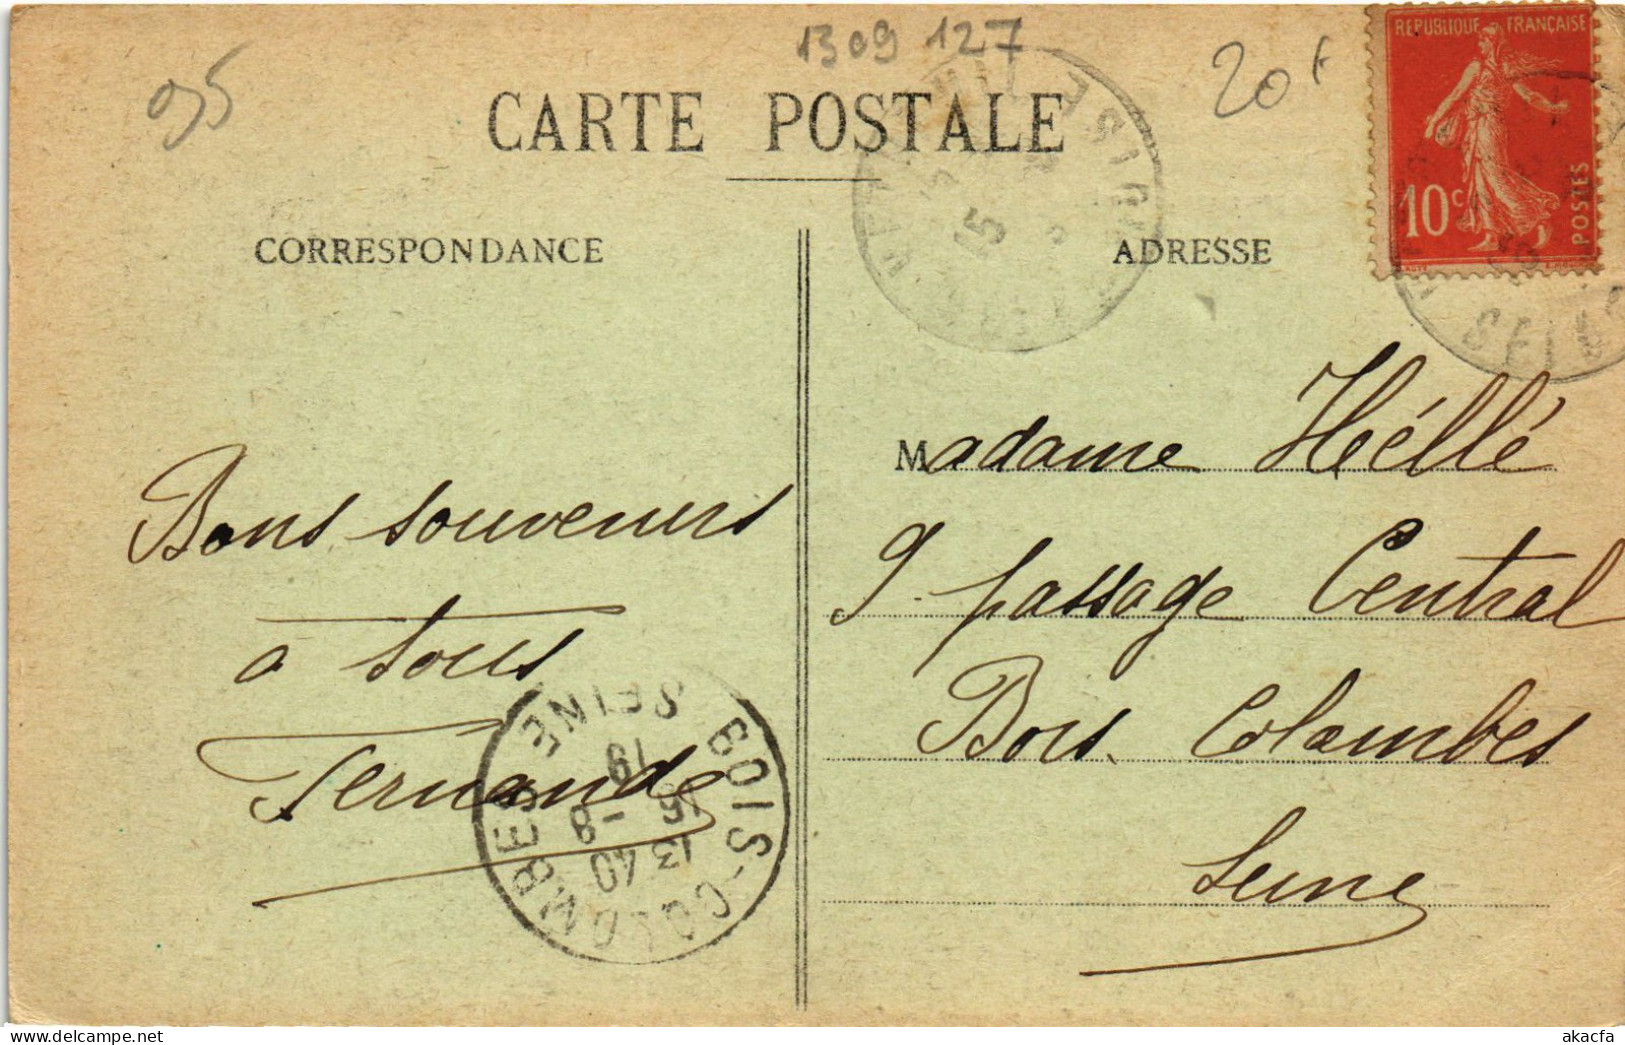 1309 127
95
20f
CARTE POSTALE
REPUBLIQUE FRANÇAISE
10c
POSTES
CORRESPONDANCE
ADRESSE
OISE
15
SEINE
Bons souvenirs
à tous
Fernande
Madame Héllé
9 passage Central
Bois. Colombes
Seine
BOIS-COLOMBES SEINE
13 40
15 -8
19
akacfa